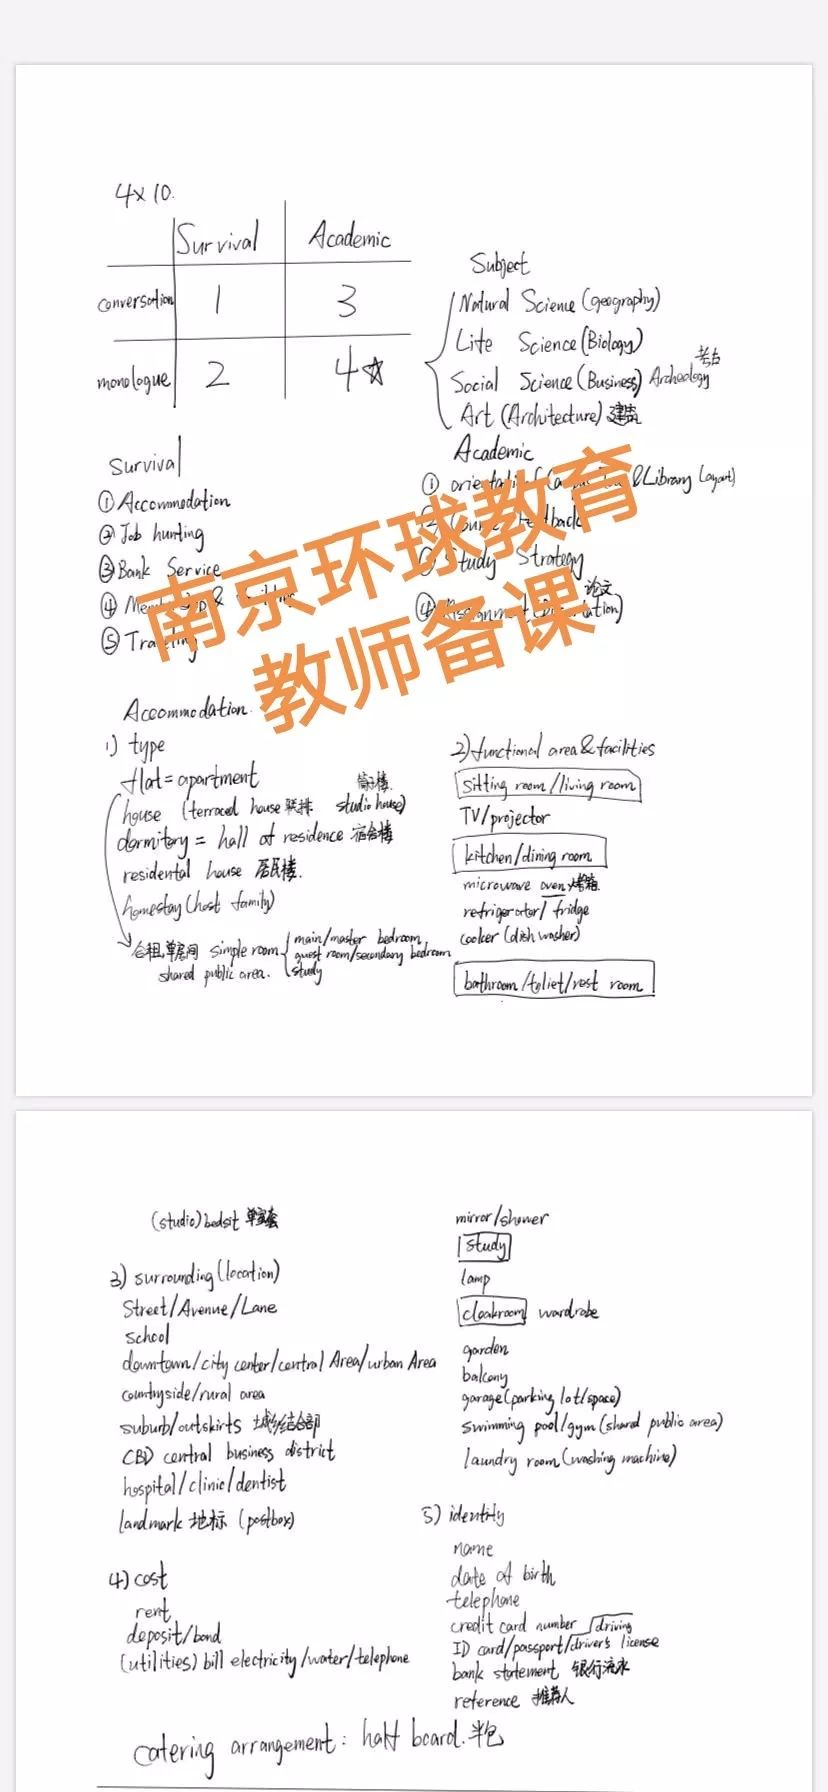 4×10.
Survival Academic
conversation 1 3
monologue 2 4☆
Subject
Natural Science (geography)
Life Science (Biology)
Social Science (Business) Archeology 考古
Art (Architecture) 建筑
Survival
① Accommodation
② Job hunting
③ Bank Service
④ &
⑤ Traveling
Academic
① orientation & Library Layout)
②
③ Study Strategy
④ Assignment 论文
南京环球教育
教师备课
Accommodation
1) type
flat = apartment
house (terraced house 联排 studio house) 筒子楼
dormitory = hall of residence 宿舍楼
residental house 居民楼.
homestay (host family)
合租单房间 simple room
shared public area.
main/master bedroom
guest room/secondary bedroom
study
2) functional area & facilities
sitting room/living room
TV/projector
kitchen/dining room
microwave oven 烤箱
refrigerator/fridge
cooker (dish washer)
bathroom/toliet/rest room
(studio) bedsit 单室套
3) surrounding (location)
Street/Avenue/Lane
school
downtown/city center/central Area/urban Area
countryside/rural area
suburb/outskirts 城乡结合部
CBD central business district
hospital/clinic/dentist
landmark 地标 (postbox)
4) cost
rent
deposit/bond
(utilities) bill electricity/water/telephone
mirror/shower
study
lamp
cloakroom wardrobe
garden
balcony
garage (parking lot/space)
swimming pool/gym (shared public area)
laundry room (washing machine)
5) identity
name
date of birth
telephone
credit card number driving
ID card/passport/driver's license
bank statement 银行流水
reference 推荐人
catering arrangement: half board. 半包